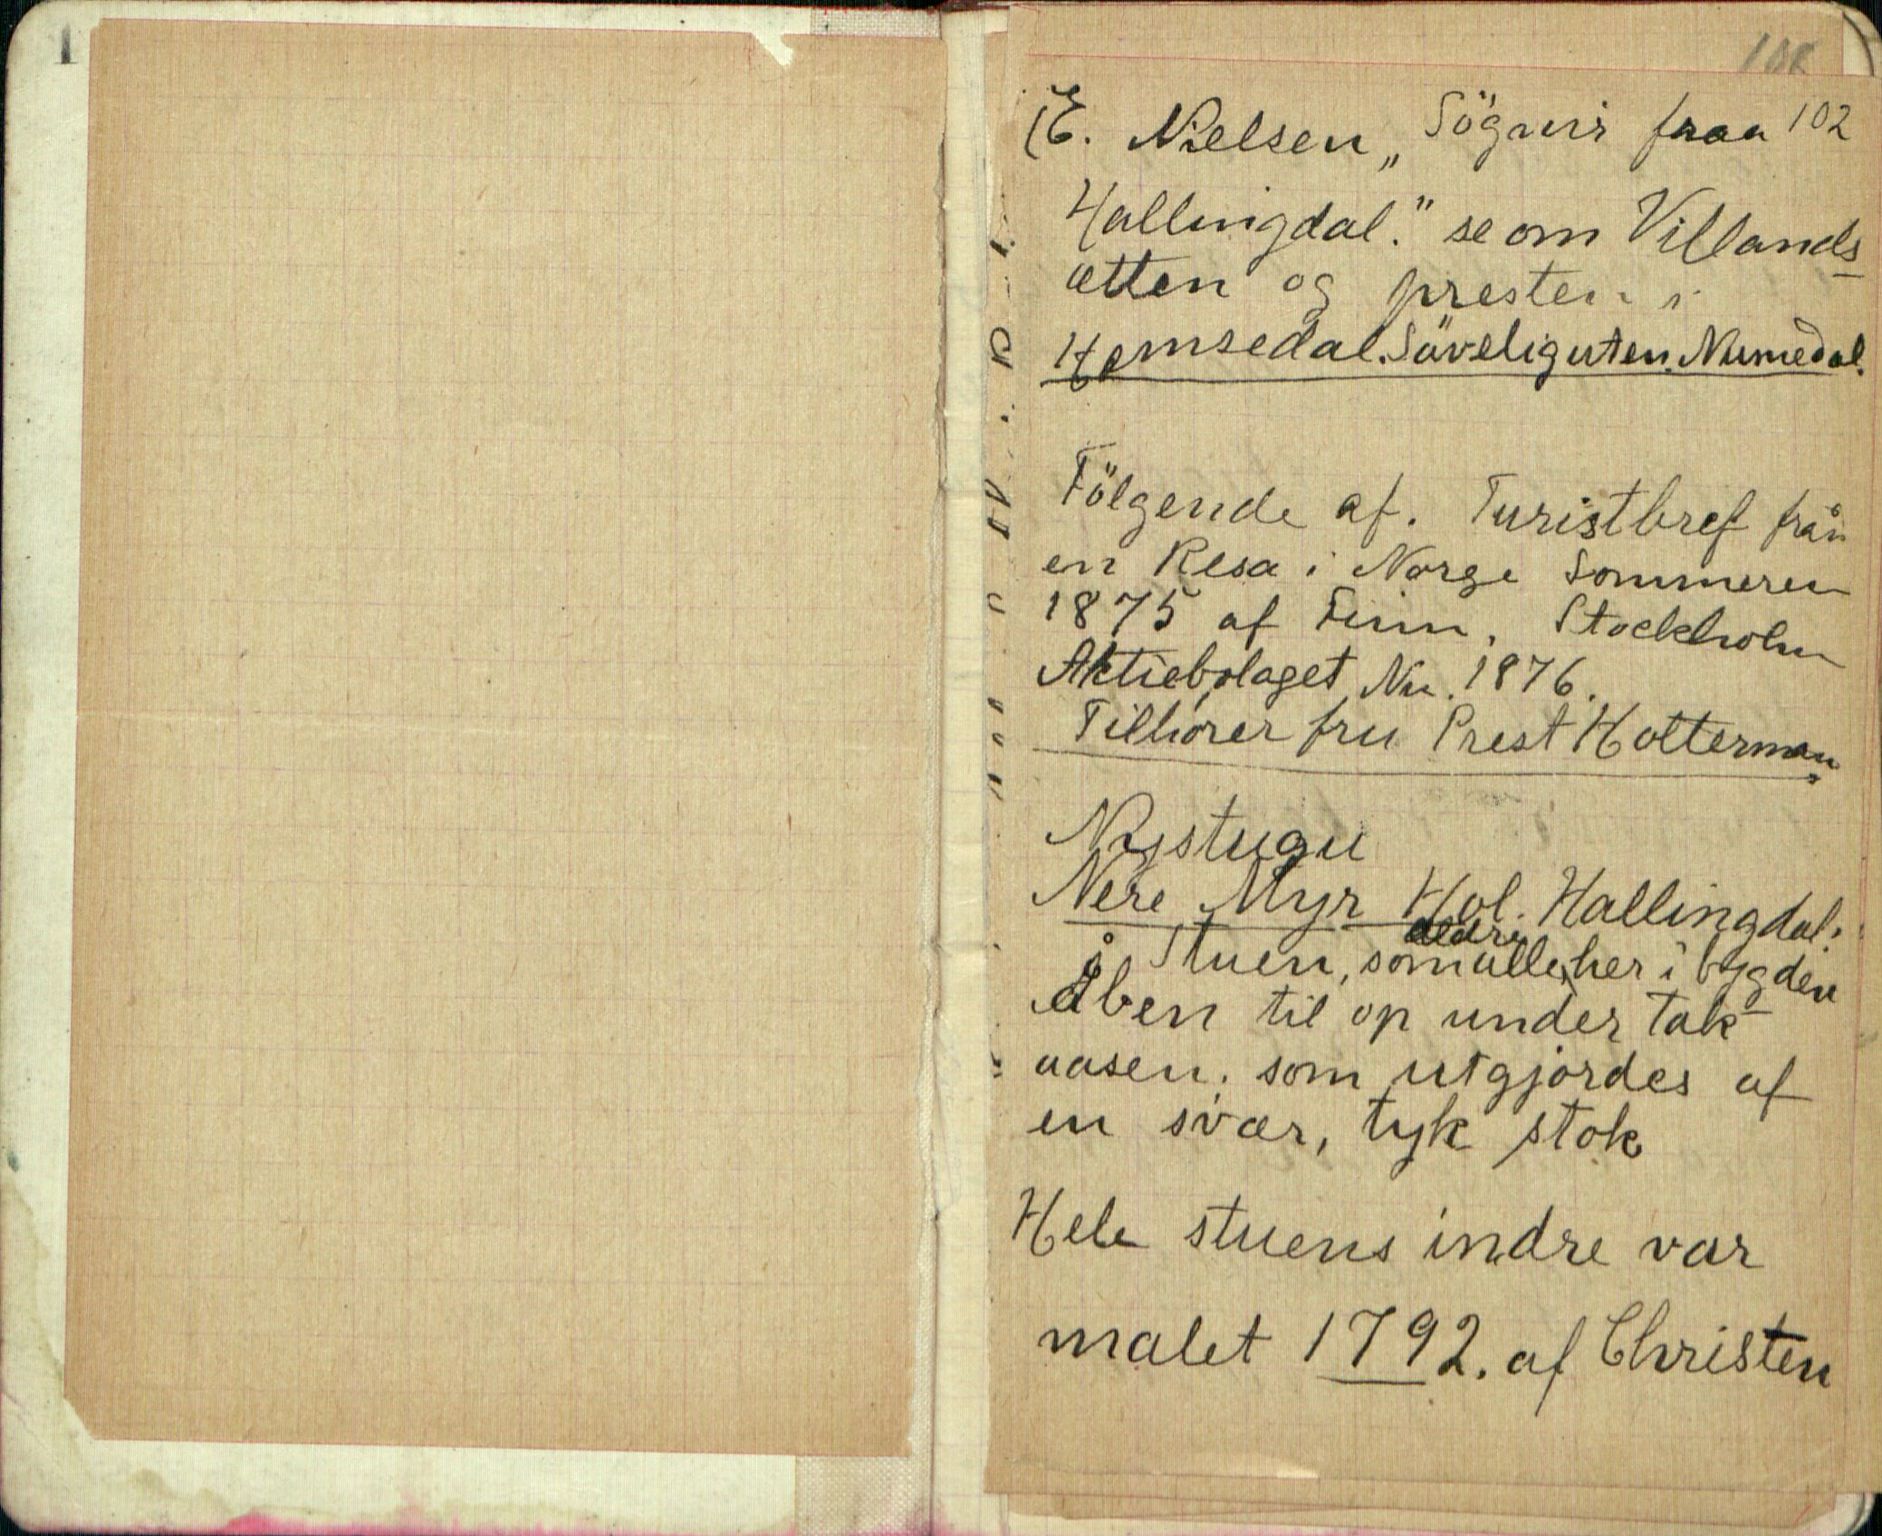 1
(E. Nielsen „Sögnir fraa 102
Hallingdal." se om Villands
ætten og presten i
Hemsedal. Söveliguten. Numedal.
Fölgende af. Turistbref från
en Resa i Norge Sommeren
1875 af Finn, Stockholm
Aktiebolaget Nu. 1876.
Tilhörer fru Prest Holterman.
Nystugu
Nere Myr Hol. Hallingdal.
ældre
i Stuen, som alle her i bygden
åben til op under tak
aasen. som utgjordes af
en svær, tyk stok
Hele stuens indre var
malet 1792. af Christen